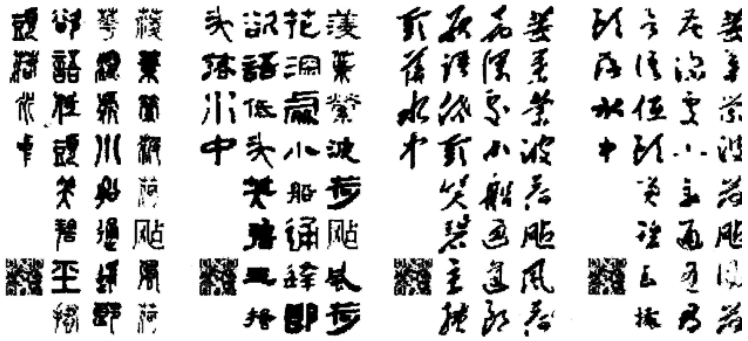 菱葉縈波荷颭風荷
花深處小船通逢郎
欲語低頭笑碧玉搔
頭落水中
菱葉縈波荷颭風荷
花深處小船通逢郎
欲語低頭笑碧玉搔
頭落水中
菱葉縈波荷颭風荷
花深處小船通逢郎
欲語低头笑碧玉搔
头落水中
菱葉縈波荷颭風荷
花深處小船通逢郎
欲語低頭笑碧玉搔
頭落水中